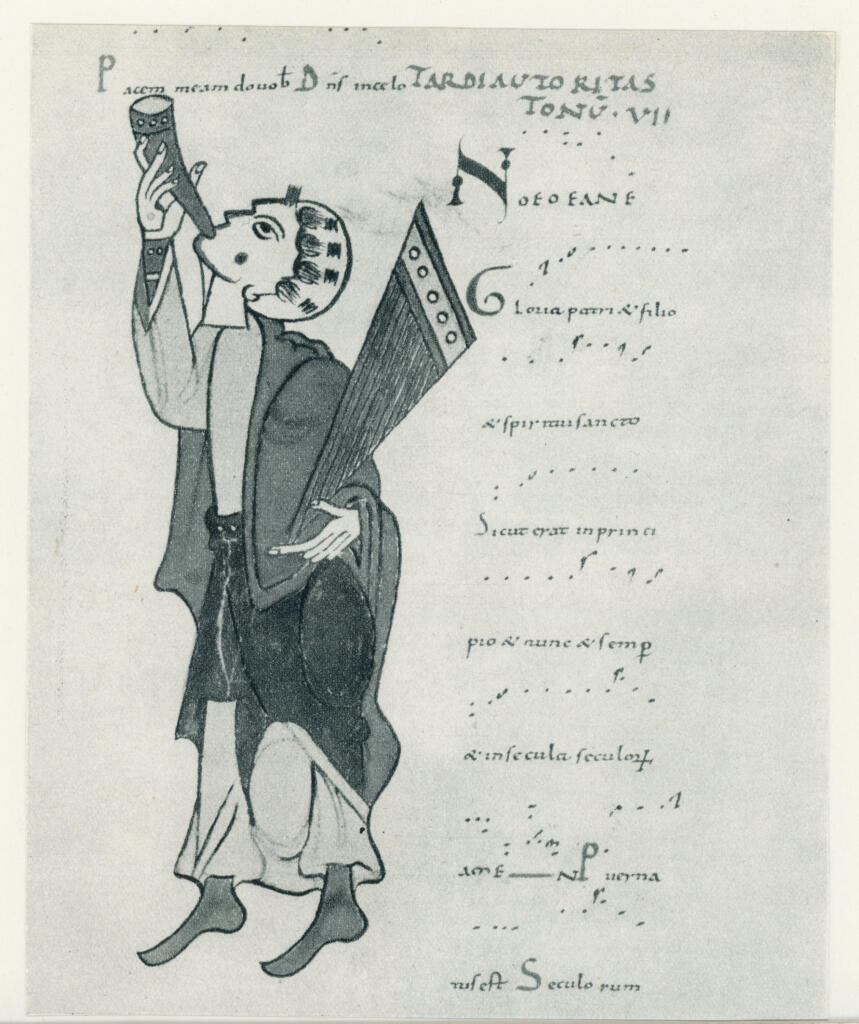 Pacem meam do uob Dn̄s in celo TARDI AUTORITAS
TONŪ · VII
NOEOEANE
Gloria patri & filio
& spiritui sancto
Sicut erat in princi
pio & nunc & semp
& in secula seculorꝝ
AmE — N Puer na
tus est Seculorum